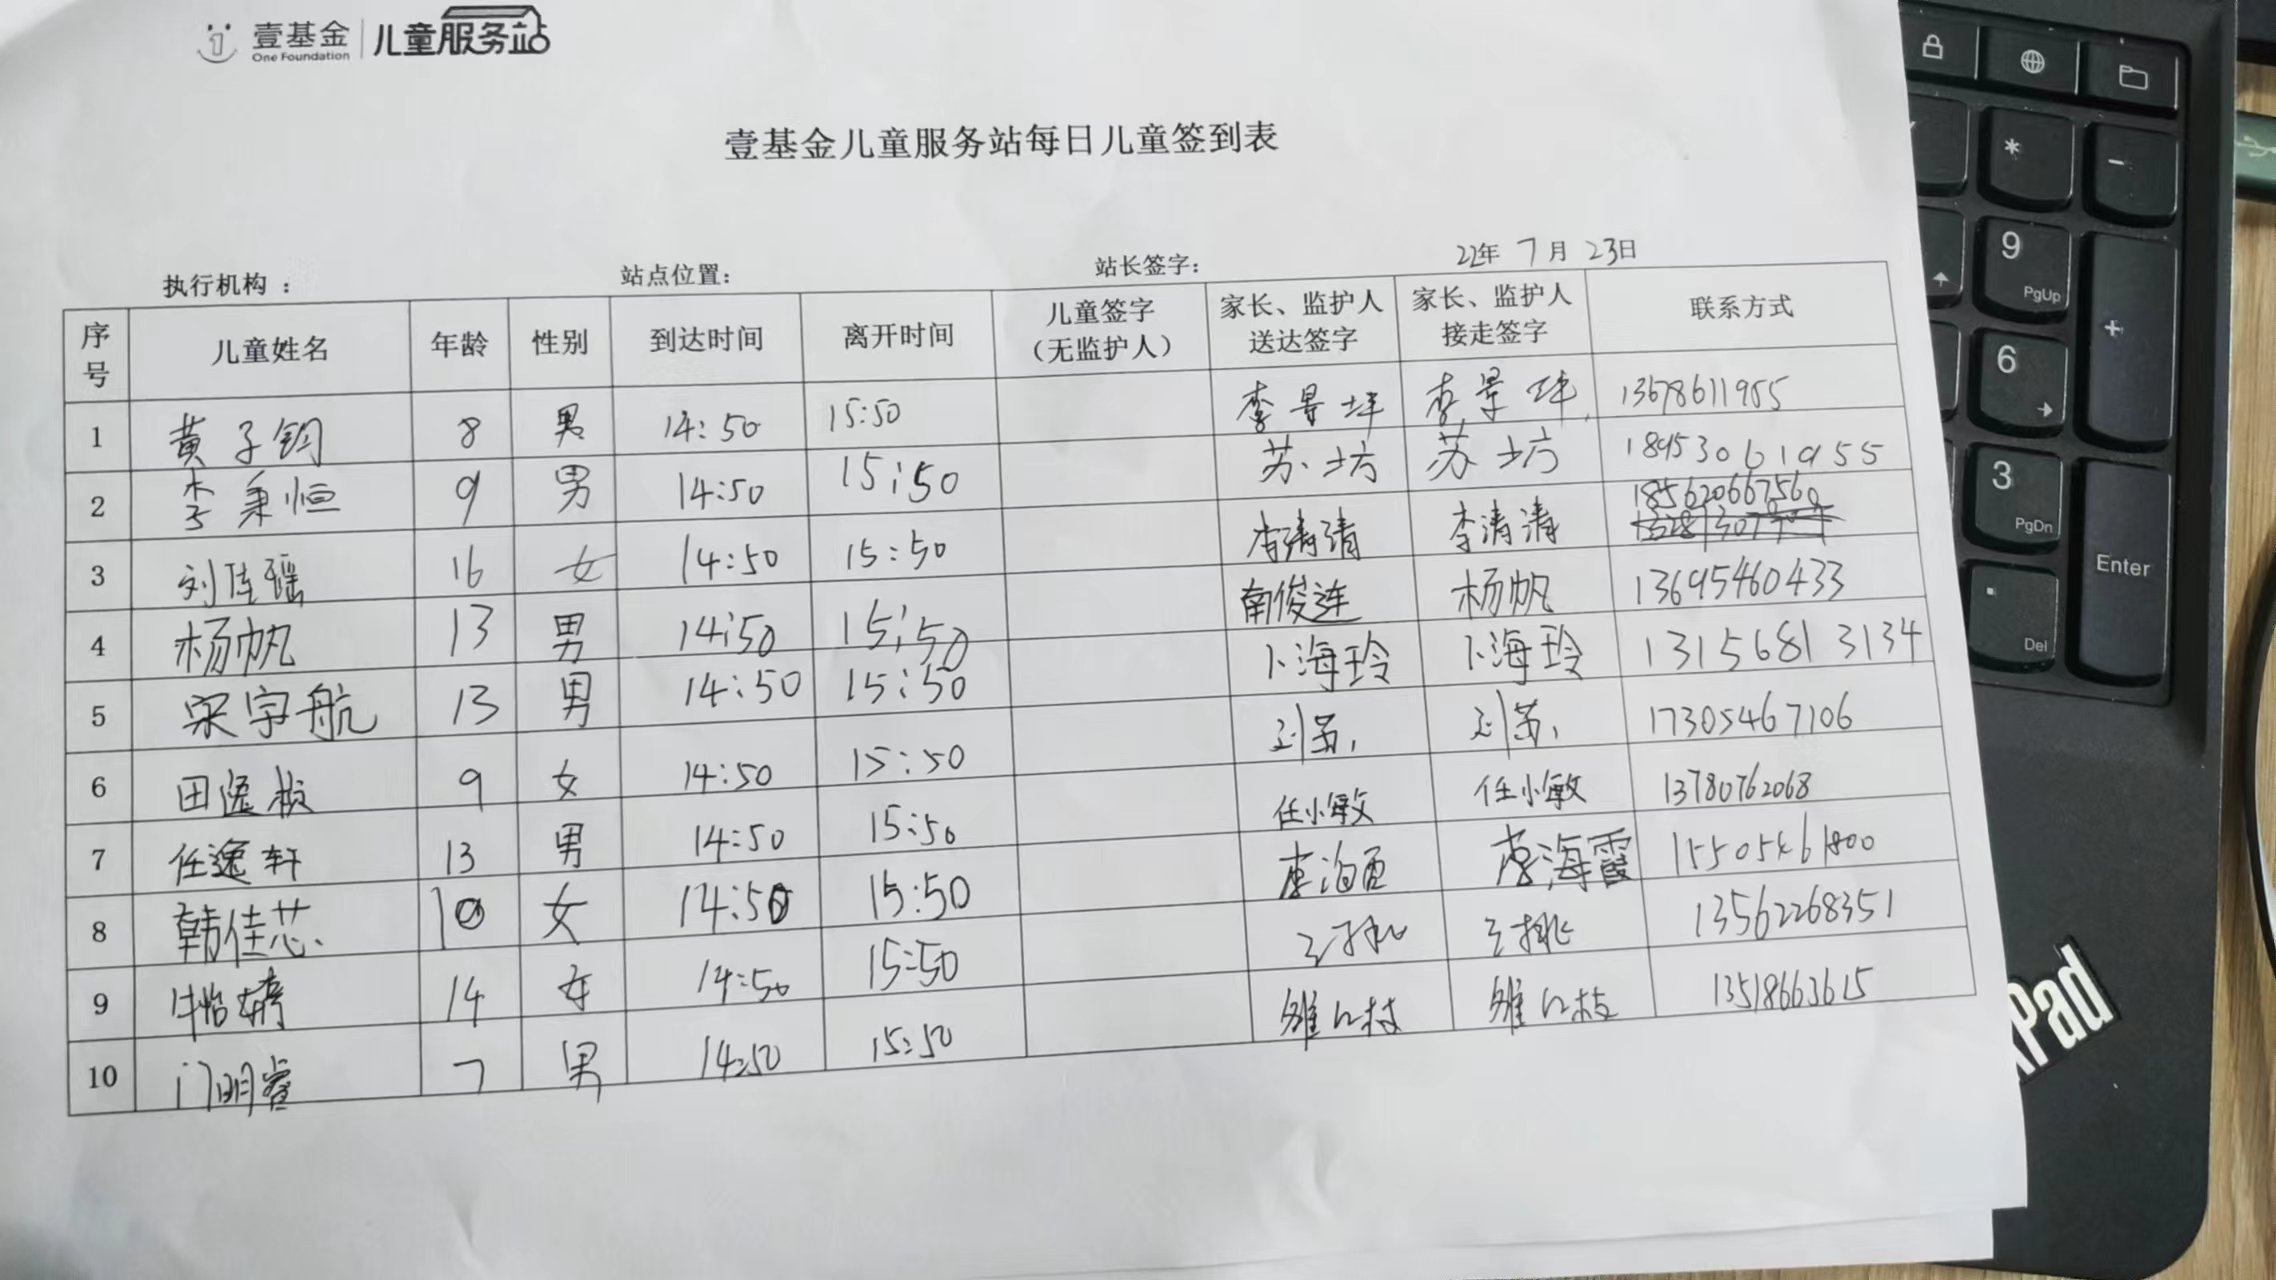 壹基金 儿童服务站
One Foundation
壹基金儿童服务站每日儿童签到表
执行机构： 站点位置： 站长签字： 22年 7月 23日
序号 儿童姓名 年龄 性别 到达时间 离开时间 儿童签字（无监护人） 家长、监护人送达签字 家长、监护人接走签字 联系方式
1 黄子钧 8 男 14:50 15:50 李景坪 李景坪 13678611955
2 李秉恒 9 男 14:50 15:50 苏坊 苏坊 18953061955
3 刘佳瑶 16 女 14:50 15:50 李清清 李清清 18562066756
4 杨帆 13 男 14:50 15:50 南俊连 杨帆 13695460433
5 宋宇航 13 男 14:50 15:50 卜海玲 卜海玲 13156813134
6 田 9 女 14:50 15:50 17305467106
7 任逸轩 13 男 14:50 15:50 任小敏 任小敏 13780762068
8 韩佳芯 10 女 14:50 15:50 海霞 15505461800
9 牛怡婷 14 女 14:50 15:50 13562268351
10 门明睿 7 男 14:50 15:50 13518663615
* -
9 PgUp +
6
3 PgDn Enter
. Del
Pad